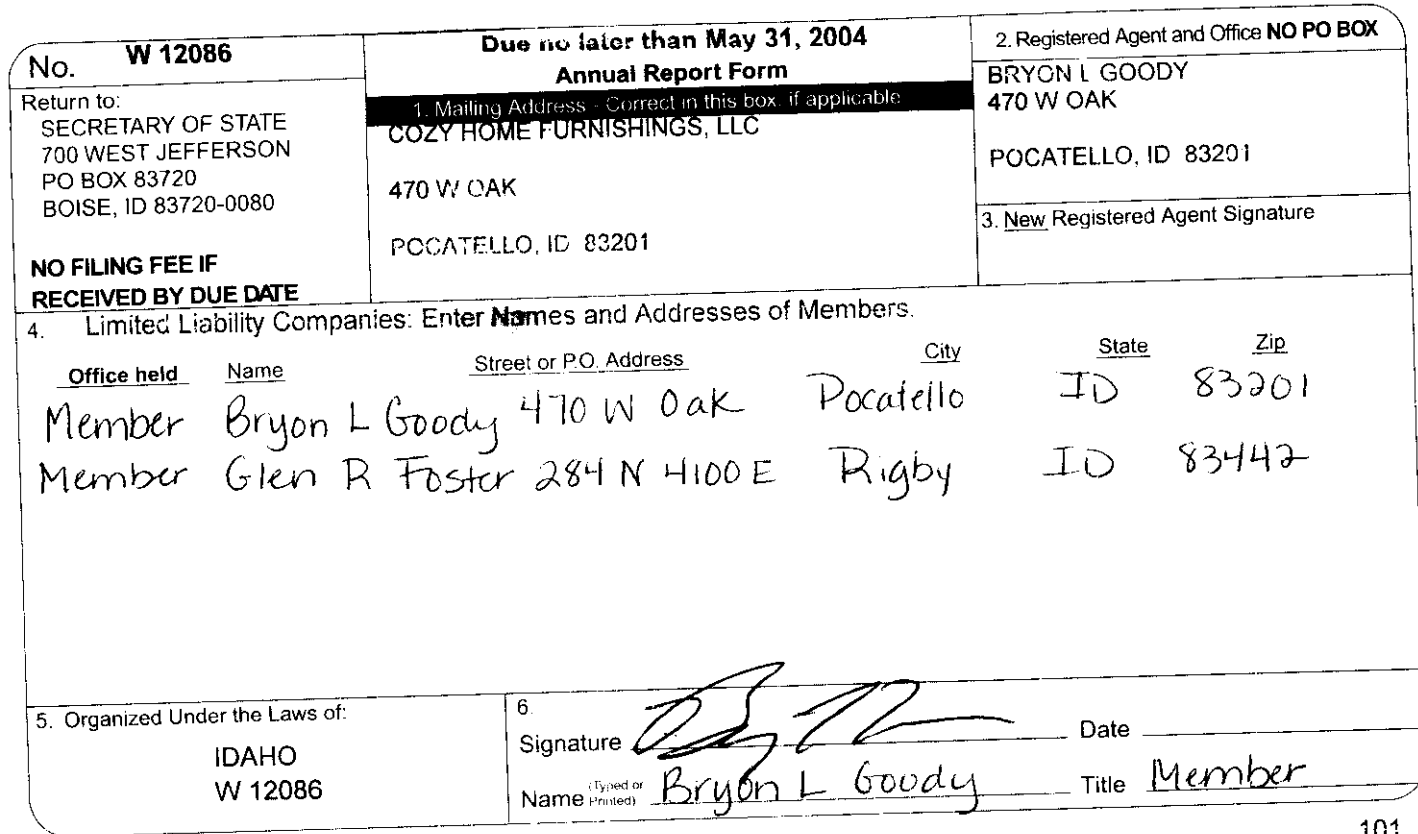 No. W 12086
Return to:
SECRETARY OF STATE
700 WEST JEFFERSON
PO BOX 83720
BOISE, ID 83720-0080
NO FILING FEE IF
RECEIVED BY DUE DATE
Due no later than May 31, 2004
Annual Report Form
1. Mailing Address - Correct in this box, if applicable
COZY HOME FURNISHINGS, LLC
470 W OAK
POCATELLO, ID 83201
2. Registered Agent and Office NO PO BOX
BRYON L GOODY
470 W OAK
POCATELLO, ID 83201
3. New Registered Agent Signature
4. Limited Liability Companies: Enter Names and Addresses of Members.
Office held Name Street or P.O. Address City State Zip
Member Bryon L Goody 470 W Oak Pocatello ID 83201
Member Glen R Foster 284 N 4100 E Rigby ID 83442
5. Organized Under the Laws of:
IDAHO
W 12086
6.
Signature Date
Name (Typed or Printed) Bryon L Goody Title Member
101